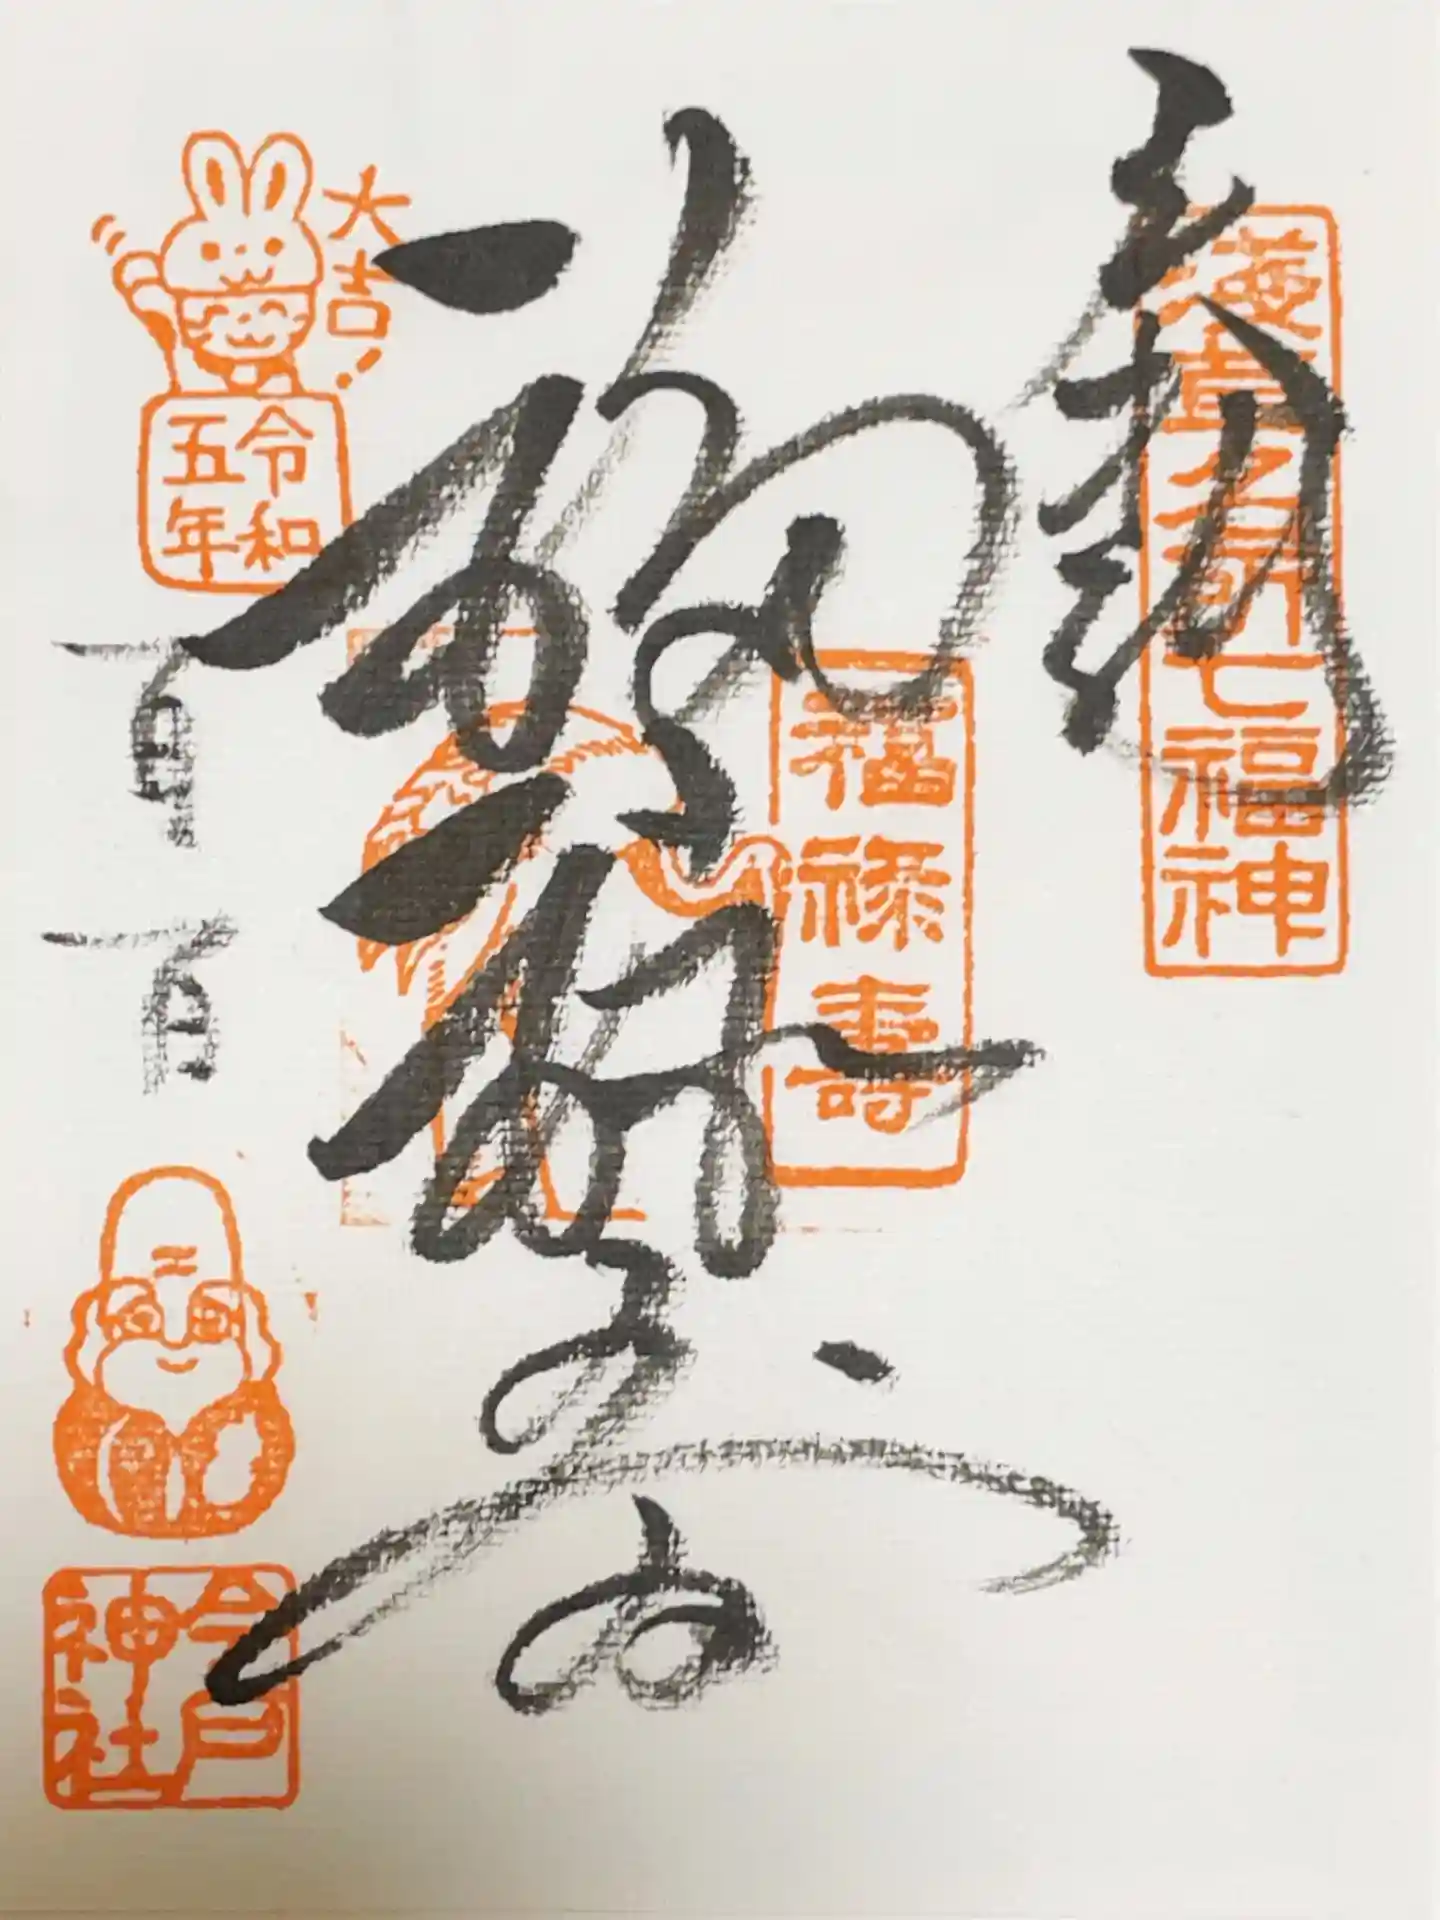 奉拝
浅草名所七福神
福禄寿
福禄寿
大吉!
令和
五年
今戸
神社